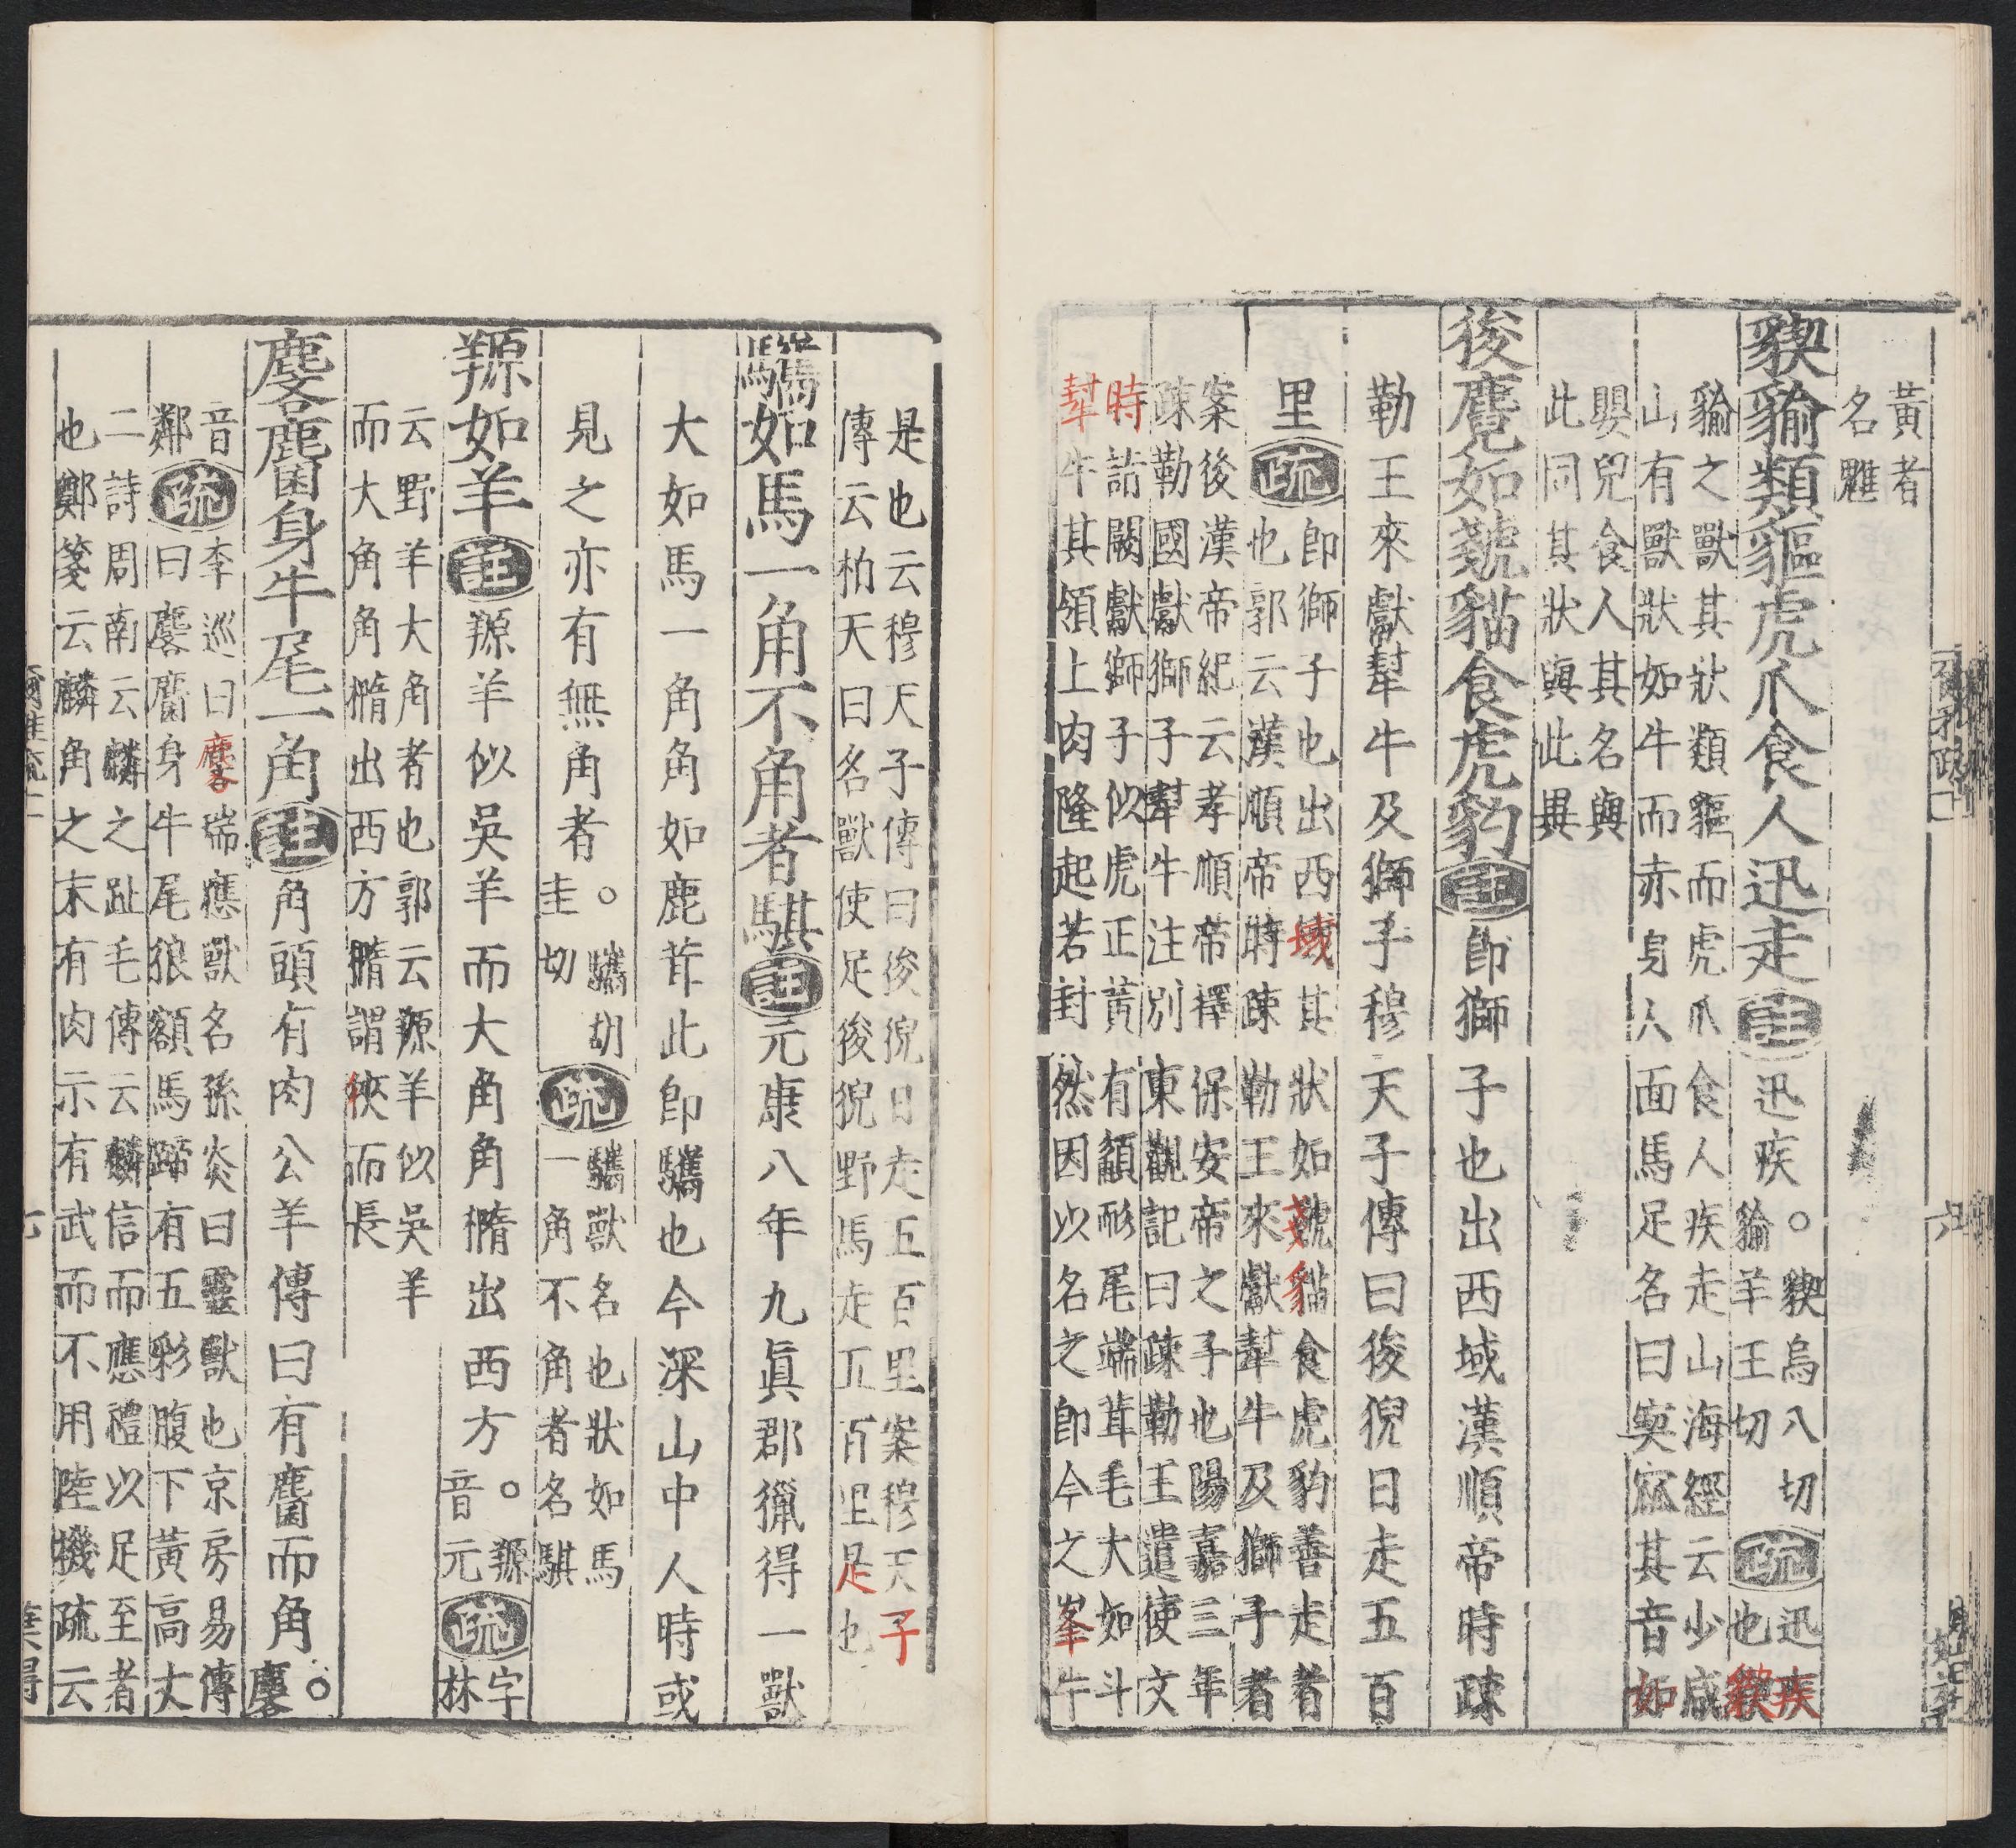 黃者
名魋
䝟貐類貙虎爪食人迅走註迅疾。䝟烏八切
貐羊王切疏迅疾
也䝟
貐之獸其狀類貙而虎爪食人疾走山海經云少咸
山有獸狀如牛而赤身人面馬足名曰窫窳其音如
嬰兒食人其名與
此同其狀與此異
狻麑如虦貓食虎豹註卽獅子也出西域漢順帝時疎
勒王來獻犎牛及獅子穆天子傳曰狻猊日走五百
里疏卽獅子也出西域其狀如虦貓食虎豹善走者
也郭云漢順帝時疎勒王來獻犎牛及獅子者
案後漢帝紀云孝順帝諱保安帝之子也陽嘉三年
疎勒國獻獅子犎牛注別東觀記曰疎勒王遣使文
時詣闕獻獅子似虎正黃有䫇耏尾端茸毛大如斗
犎牛其領上肉隆起若封然因以名之卽今之峯牛
是也云穆天子傳曰狻猊日走五百里案穆天子
傳云柏天曰名獸使足狻猊野馬走五百里是也
驨如馬一角不角者騏註元康八年九眞郡獵得一獸
大如馬一角角如鹿茸此卽驨也今深山中人時或
見之亦有無角者。驨胡
圭切疏驨獸名也狀如馬
一角不角者名騏
羱如羊註羱羊似吳羊而大角角橢出西方。羱
音元疏字
林
云野羊大角者也郭云羱羊似吳羊
而大角角橢出西方橢謂狹而長
麐麕身牛尾一角註角頭有肉公羊傳曰有麕而角。麐
音鄰疏李巡曰麐瑞應獸名孫炎曰靈獸也京房易傳
曰麐麕身牛尾狼額馬蹄有五彩腹下黃高丈
二詩周南云麟之趾毛傳云麟信而應禮以足至者
也鄭箋云麟角之末有肉示有武而不用陸機疏云